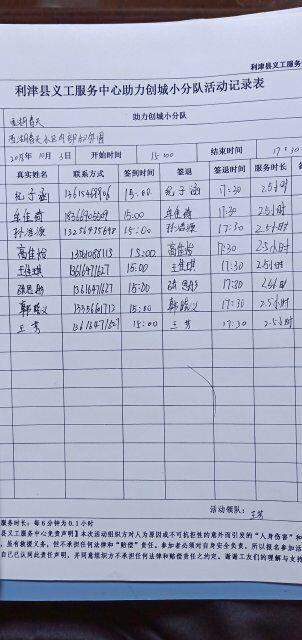 利津县义工服务
利津县义工服务中心助力创城小分队活动记录表
香湖春天 助力创城小分队
香湖春天小区内部和外围
2018年 10月 3日 开始时间 15:00 结束时间 17:30
真实姓名 联系方式 签到时间 签退 签退时间 服务时长
15:00 17:30 2.5小时
牟佳琦 15:00 牟佳琦 17:30 2.5小时
孙浩源 15:00 孙浩源 17:30 2.5小时
高佳怡 15:00 高佳怡 17:30 2.5小时
王佳琪 13616471627 15:00 王佳琪 17:30 2.5小时
13616471627 15:00 17:30 2.5小时
15:00 17:30 2.5小时
王芳 13616471627 15:00 王芳 17:30 2.5小时
活动领队: 王芳
服务时长: 每6分钟为0.1小时
县义工服务中心免责声明】本次活动组织方对人为原因或不可抗拒性的意外而引发的“人身伤害”和
，虽有救援义务，但不承担任何法律和“赔偿”责任。参加者必须对自身安全负责，所以报名参加活
自己已认同此责任声明，并同意组织方不承担任何法律和赔偿责任之约定。谢谢工友们的理解与支持